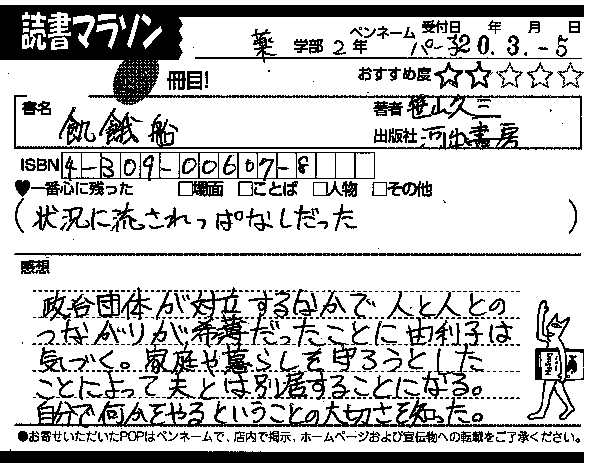 読書マラソン
薬 学部 2年 ペンネーム パーネ 受付日 年 月 日
20.3.-5
冊目!
おすすめ度 ☆☆☆☆☆
書名 飢餓船
著者 笹山久三
出版社 河出書房
ISBN 4-309-00607-8
♥一番心に残った □場面 □ことば □人物 □その他
(状況に流されっぱなしだった)
感想
政治団体が対立するなかで人と人との
つながりが希薄だったことに由利子は
気づく。家庭や暮らしを守ろうとした
ことによって夫とは別居することになる。
自分で何かをやるということの大切さを知った。
●お寄せいただいたPOPはペンネームで、店内で掲示、ホームページおよび宣伝物への転載をご了承ください。